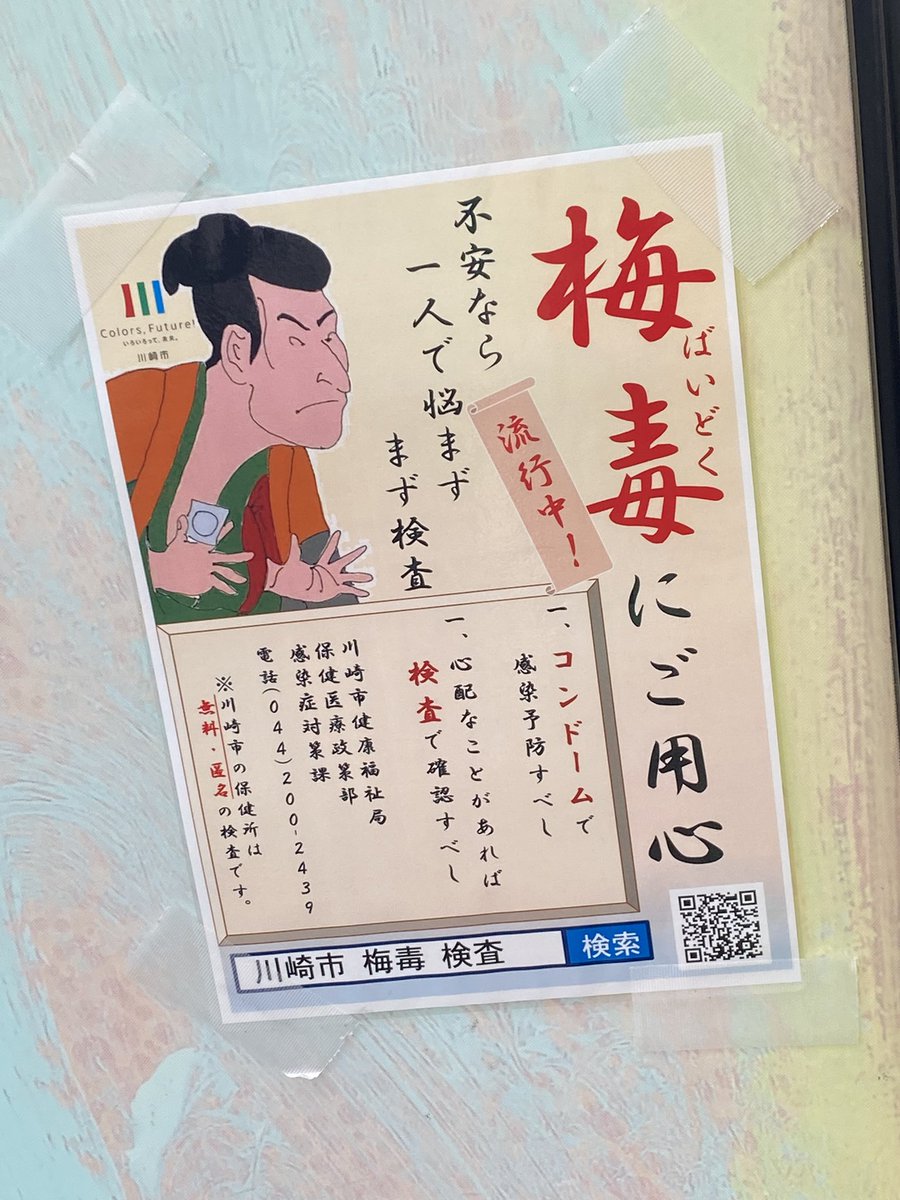 梅毒にご用心
ばいどく
流行中！
不安なら
一人で悩まず
まず検査
Colors, Future!
いろいろって、未来。
川崎市
一、コンドームで
感染予防すべし
一、心配なことがあれば
検査で確認すべし
川崎市健康福祉局
保健医療政策部
感染症対策課
電話(044)200-2439
※川崎市の保健所は
無料・匿名の検査です。
川崎市 梅毒 検査
検索